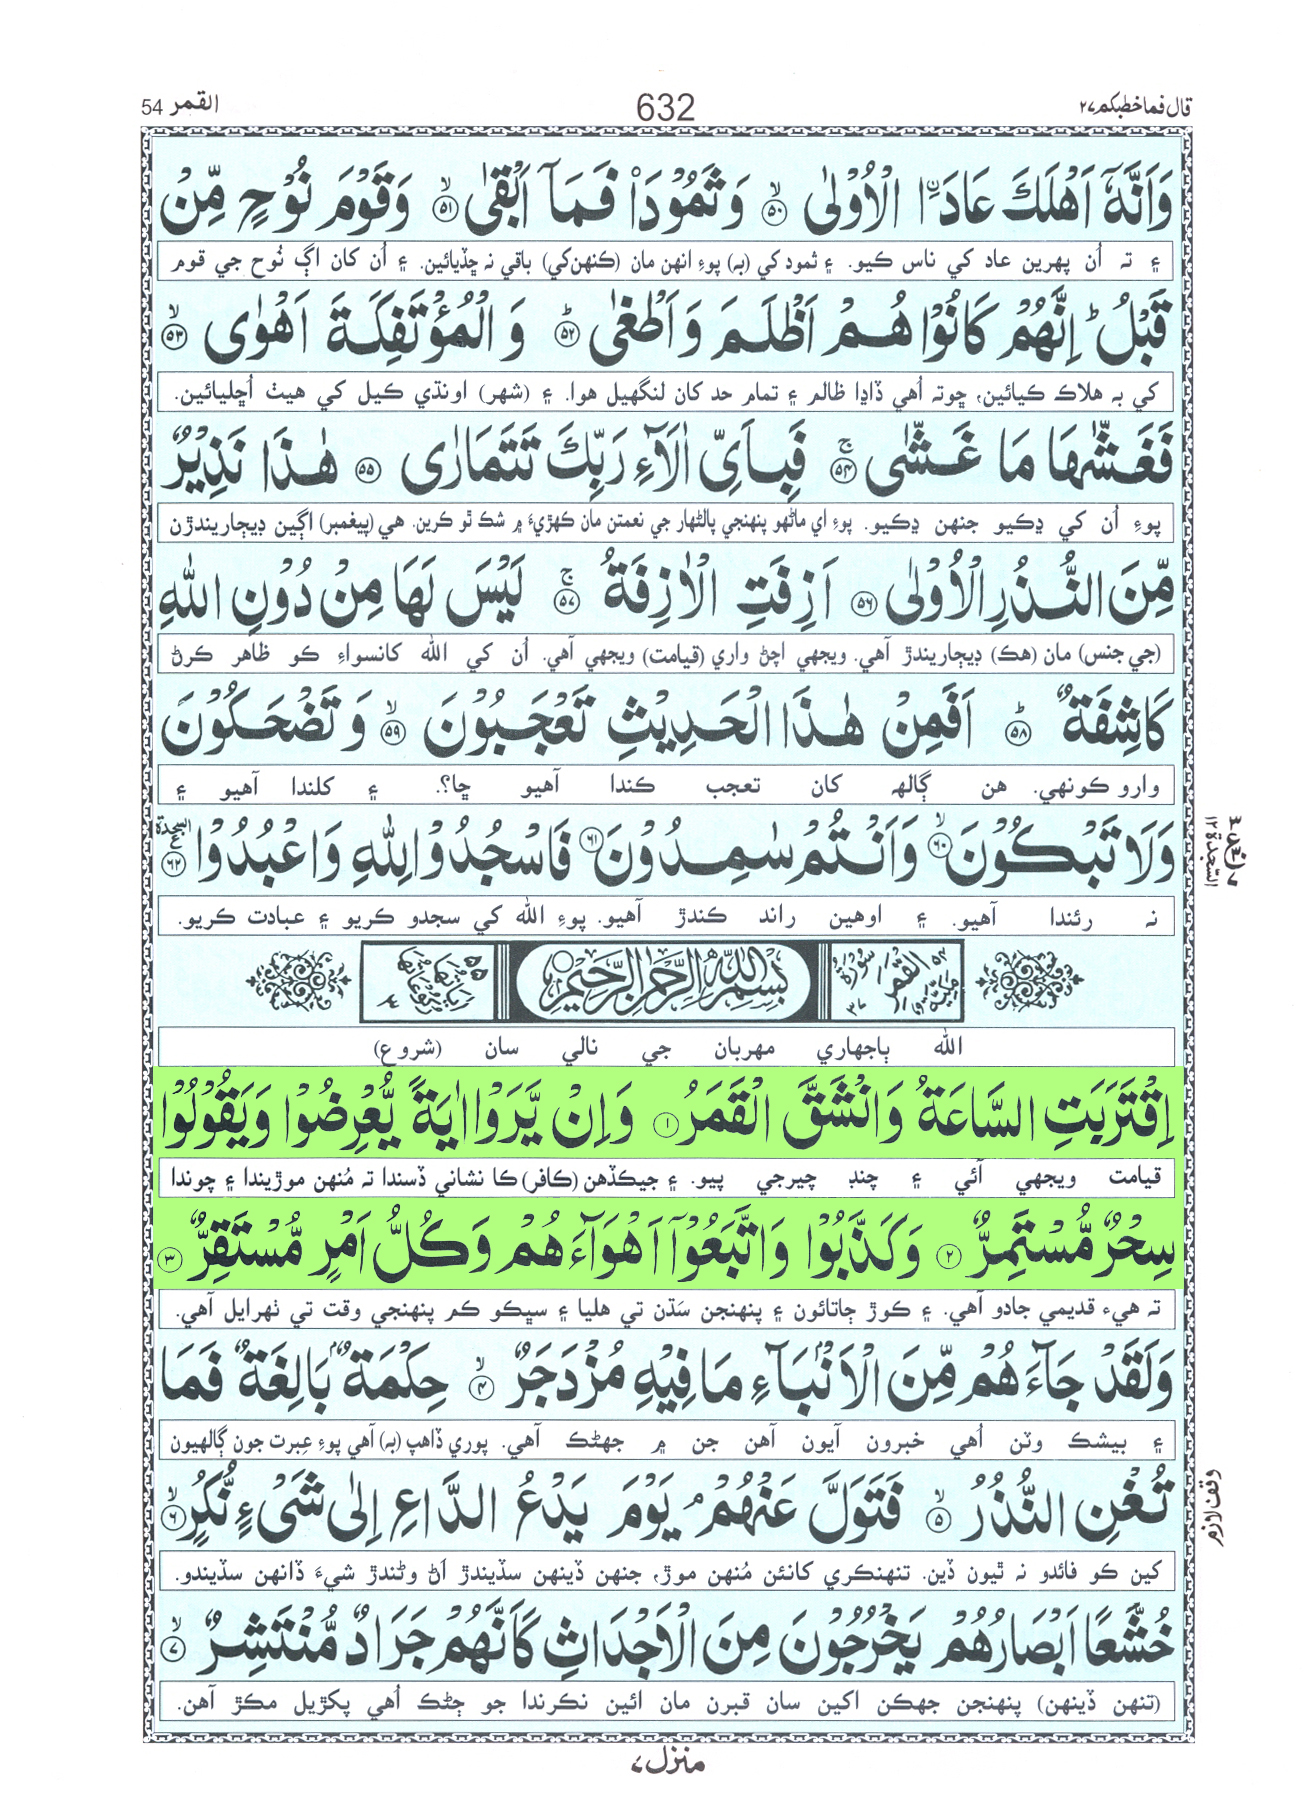 القمر 54
632
قال فما خطبكم ٢٧
وَاَنَّهٗٓ اَهْلَكَ عَادَ ࣙا الْاُوْلٰى ۙ ٥٠ وَثَمُوْدَا۟ فَمَآ اَبْقٰى ۙ ٥١ وَقَوْمَ نُوْحٍ مِّنْ
۽ تہ اُن پھرين عاد کي ناس ڪيو. ۽ ثمود کي (بہ) پوءِ انھن مان (ڪنھن کي) باقي نہ ڇڏيائين. ۽ اُن کان اڳ نُوح جي قوم
قَبْلُ ؕ اِنَّهُمْ كَانُوْا هُمْ اَظْلَمَ وَاَطْغٰى ؕ ٥٢ وَالْمُؤْتَفِكَةَ اَهْوٰى ۙ ٥٣
کي بہ ھلاڪ ڪيائين، ڇوتہ اُھي ڏاڍا ظالم ۽ تمام حد کان لنگھيل ھوا. ۽ (شھر) اونڌي ڪيل کي ھيٺ اُڇليائين.
فَغَشّٰىهَا مَا غَشّٰى ۚ ٥٤ فَبِاَيِّ اٰلَآءِ رَبِّكَ تَتَمَارٰى ٥٥ هٰذَا نَذِيْرٌ
پوءِ اُن کي ڍڪيو جنھن ڍڪيو. پوءِ اي ماڻھو پنھنجي پالڻھار جي نعمتن مان ڪھڙيءَ ۾ شڪ ٿو ڪرين. ھي (پيغمبر) اڳين ڊيڄاريندڙن
مِّنَ النُّذُرِ الْاُوْلٰى ٥٦ اَزِفَتِ الْاٰزِفَةُ ۚ ٥٧ لَيْسَ لَهَا مِنْ دُوْنِ اللّٰهِ
(جي جنس) مان (ھڪ) ڊيڄاريندڙ آھي. ويجھي اچڻ واري (قيامت) ويجھي آھي. اُن کي الله کانسواءِ ڪو ظاھر ڪرڻ
كَاشِفَةٌ ؕ ٥٨ اَفَمِنْ هٰذَا الْحَدِيْثِ تَعْجَبُوْنَ ۙ ٥٩ وَتَضْحَكُوْنَ
وارو ڪونھي. ھن ڳالھہ کان تعجب ڪندا آھيو ڇا؟. ۽ کلندا آھيو ۽
وَلَا تَبْكُوْنَ ۙ ٦٠ وَاَنْتُمْ سٰمِدُوْنَ ٦١ فَاسْجُدُوْا لِلّٰهِ وَاعْبُدُوْا ٦٢ السجدة
نہ رئندا آھيو. ۽ اوھين راند ڪندڙ آھيو. پوءِ الله کي سجدو ڪريو ۽ عبادت ڪريو.
السجدة ١٢
٥٤ سورة القمر مكية ٣٧
بسم الله الرحمن الرحيم
اٰياتها ٥٥ ركوعاتها ٣
الله ٻاجھاري مھربان جي نالي سان (شروع)
اِقْتَرَبَتِ السَّاعَةُ وَانْشَقَّ الْقَمَرُ ١ وَاِنْ يَّرَوْا اٰيَةً يُّعْرِضُوْا وَيَقُوْلُوْا
قيامت ويجھي آئي ۽ چنڊ چيرجي پيو. ۽ جيڪڏھن (ڪافر) ڪا نشاني ڏسندا تہ مُنھن موڙيندا ۽ چوندا
سِحْرٌ مُّسْتَمِرٌّ ٢ وَكَذَّبُوْا وَاتَّبَعُوْٓا اَهْوَآءَهُمْ وَكُلُّ اَمْرٍ مُّسْتَقِرٌّ ٣
تہ ھيءُ قديمي جادو آھي. ۽ ڪوڙ ڄاتائون ۽ پنھنجن سَڌن تي ھليا ۽ سڀڪو ڪم پنھنجي وقت تي ٺھرايل آھي.
وَلَقَدْ جَآءَهُمْ مِّنَ الْاَنْۢبَآءِ مَا فِيْهِ مُزْدَجَرٌ ۙ ٤ حِكْمَةٌۢ بَالِغَةٌ فَمَا
۽ بيشڪ وٽن اُھي خبرون آيون آھن جن ۾ جھڻڪ آھي. پوري ڏاھپ (بہ) آھي پوءِ عِبرت جون ڳالھيون
تُغْنِ النُّذُرُ ۙ ٥ فَتَوَلَّ عَنْهُمْ ۘ يَوْمَ يَدْعُ الدَّاعِ اِلٰى شَيْءٍ نُّكُرٍ ۙ ٦
وقف لازم
کين ڪو فائدو نہ ٿيون ڏين. تنھنڪري کانئن مُنھن موڙ، جنھن ڏينھن سڏيندڙ اَڻ وڻندڙ شيءَ ڏانھن سڏيندو.
خُشَّعًا اَبْصَارُهُمْ يَخْرُجُوْنَ مِنَ الْاَجْدَاثِ كَاَنَّهُمْ جَرَادٌ مُّنْتَشِرٌ ۙ ٧
(تنھن ڏينھن) پنھنجن جھڪن اکين سان قبرن مان ائين نڪرندا جو ڄڻڪ اُھي پکڙيل مڪڙ آھن.
منزل ٧